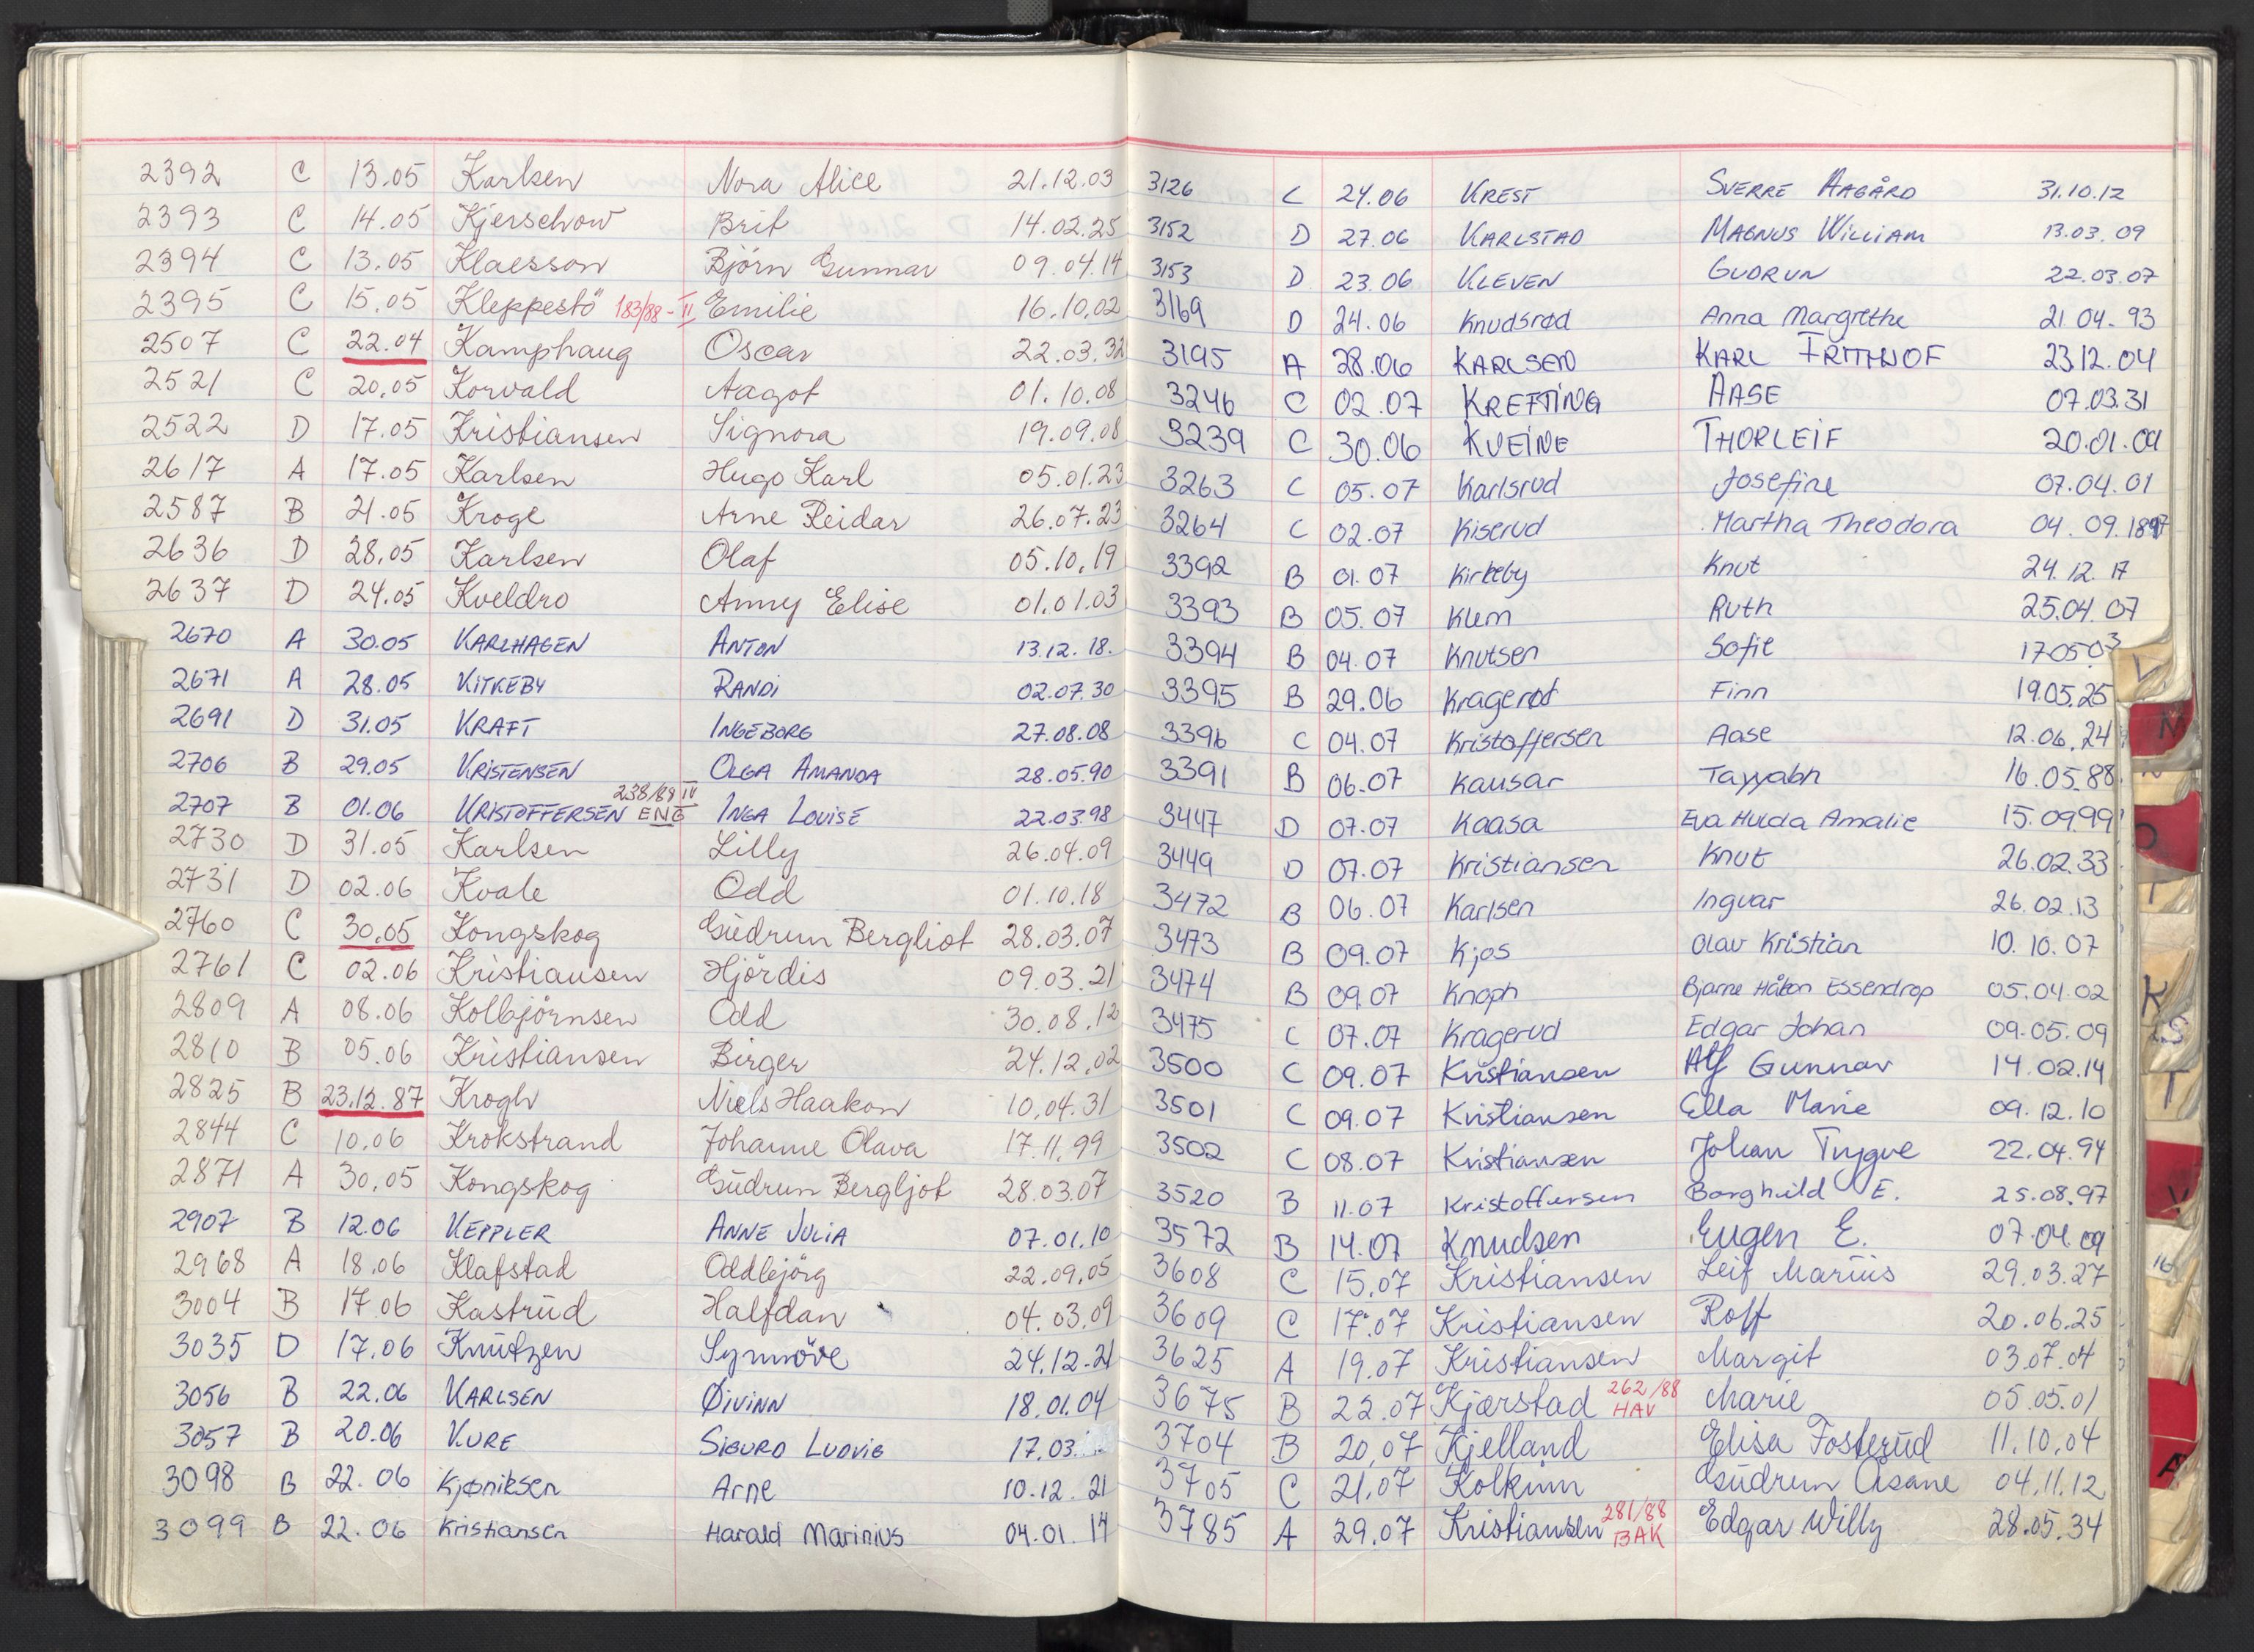 2392 C 13.05 Karlsen Nora Alice 21.12.03
2393 C 14.05 Kjerschow Brit 14.02.25
2394 C 13.05 Klaesson Björn Gunnar 09.04.14
2395 C 15.05 Kleppestö 183/88-II Emilie 16.10.02
2507 C 22.04 Kamphaug Oscar 22.03.32
2521 C 20.05 Korvald Aagot 01.10.08
2522 D 17.05 Kristiansen Signora 19.09.08
2617 A 17.05 Karlsen Hugo Karl 05.01.23
2587 B 21.05 Kroge Arne Reidar 26.07.23
2636 D 28.05 Karlsen Olaf 05.10.19
2637 D 24.05 Kveldro Anny Elise 01.01.03
2670 A 30.05 KARLHAGEN ANTON 13.12.18.
2671 A 28.05 KITKEBY RANDI 02.07.30
2691 D 31.05 KRAFT INGEBORG 27.08.08
2706 B 29.05 KRISTENSEN OLGA AMANDA 28.05.90
238/88 IV
2707 B 01.06 KRISTOFFERSEN ENG INGA LOUISE 22.03.98
2730 D 31.05 Karlsen Lilly 26.04.09
2731 D 02.06 Kvale Odd 01.10.18
2760 C 30.05 Kongskog Gudrun Bergliot 28.03.07
2761 C 02.06 Kristiansen Hjördis 09.03.21
2809 A 08.06 Kolbjörnsen Odd 30.08.12
2810 B 05.06 Kristiansen Birger 24.12.02
2825 B 23.12.87 Krogh Niels Haakon 10.04.31
2844 C 10.06 Krokstrand Johanne Olava 17.11.99
2871 A 30.05 Kongskog Gudrun Bergljot 28.03.07
2907 B 12.06 KEPPLER ANNE JULIA 07.01.10
2968 A 18.06 Klafstad Oddbjörg 22.09.05
3004 B 17.06 Kastrud Halfdan 04.03.09
3035 D 17.06 Knutzen Synnöve 24.12.21
3056 B 22.06 KARLSEN ØIVINN 18.01.04
3057 B 20.06 KURE SIGURD LUDVIG 17.03.
3098 B 22.06 Kjøniksen Arne 10.12.21
3099 B 22.06 Kristiansen Harald Marinius 04.01.14
3126 C 24.06 KREST SVERRE AAGÅRD 31.10.12
3152 D 27.06 KARLSTAD MAGNUS WILLIAM 13.03.09
3153 D 23.06 KLEVEN GUDRUN 22.03.07
3169 D 24.06 Knudsrød Anna Margrethe 21.04.93
3195 A 28.06 KARLSEN KARL FRITHJOF 23.12.04
3246 C 02.07 KREFTING AASE 07.03.31
3239 C 30.06 KVEINE THORLEIF 20.01.09
3263 C 05.07 Karlsrud Josefine 07.04.01
3264 C 02.07 Kiserud Martha Theodora 04.09.1897
3392 B 01.07 Kirkeby Knut 24.12.17
3393 B 05.07 Klem Ruth 25.04.07
3394 B 04.07 Knutsen Sofie 17.05.03
3395 B 29.06 Kragerød Finn 19.05.25
3396 C 04.07 Kristoffersen Aase 12.06.24
3391 B 06.07 Kausar Tayyabh 16.05.88
3447 D 07.07 Kaasa Eva Hulda Amalie 15.09.99
3449 D 07.07 Kristiansen Knut 26.02.33
3472 B 06.07 Karlsen Ingvar 26.02.13
3473 B 09.07 Kjos Olav Kristian 10.10.07
3474 B 09.07 Knoph Bjarne Håkon Essendrop 05.04.02
3475 C 07.07 Kragerud Edgar Johan 09.05.09
3500 C 09.07 Kristiansen Alf Gunnar 14.02.14
3501 C 09.07 Kristiansen Ella Marie 09.12.10
3502 C 08.07 Kristiansen Johan Trygve 22.04.94
3520 B 11.07 Kristoffersen Borghild E. 25.08.97
3572 B 14.07 Knudsen Eugen E. 07.04.09
3608 C 15.07 Kristiansen Leif Marius 29.03.27
3609 C 17.07 Kristiansen Rolf 20.06.25
3625 A 19.07 Kristiansen Margit 03.07.04
3675 B 22.07 Kjærstad 262/88 HAV Marie 05.05.01
3704 B 20.07 Kjelland Elisa Fosterud 11.10.04
3705 C 21.07 Kolkinn Gudrun Asane 04.11.12
3785 A 29.07 Kristiansen 281/88 BAK Edgar Willy 28.05.34
L
M
O
K
S
T
V
16
A